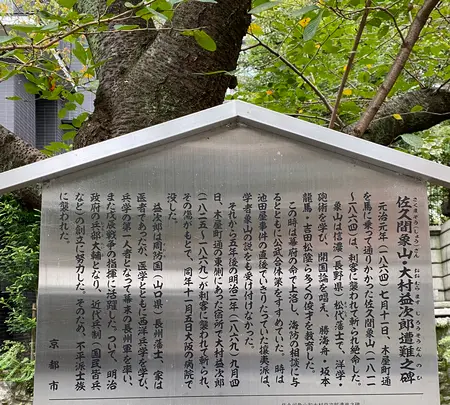 佐久間象山・大村益次郎遭難之碑
元治元年(一八六四)七月十一日、木屋町通
を馬に乗って通りかかった佐久間象山(一八一一
~一八六四)は、刺客に襲われて斬られ絶命した。
象山は信濃(長野県)松代藩士で、洋学・
砲術を学び、開国論を唱え、勝海舟・坂本
龍馬・吉田松陰ら多くの俊才を教育した。
この時は幕府の命で上洛し、海防の相談に与
るとともに公武合体策をすすめていた。時は
池田屋事件の直後でいきりたっていた攘夷派は、
学者象山の説をも受け付けなかった。
それから五年後の明治二年(一八六九)九月四
日、木屋町通の東側にあった宿所で大村益次郎
(一八二五~一八六九)が刺客に襲われて斬られ、
その傷がもとで、同年十一月五日大阪の病院で
没した。
益次郎は周防国(山口県)長州藩士、家は
医者であったが、医学とともに西洋兵学を学び、
兵学の第一人者となって幕末の長州軍を率い、
また戊辰戦争の指揮に活躍した。ついで、明治
政府の兵部大輔となり、近代兵制(国民皆兵
など)の創立に努力した。そのため、不平派士族
に襲われた。
京都市